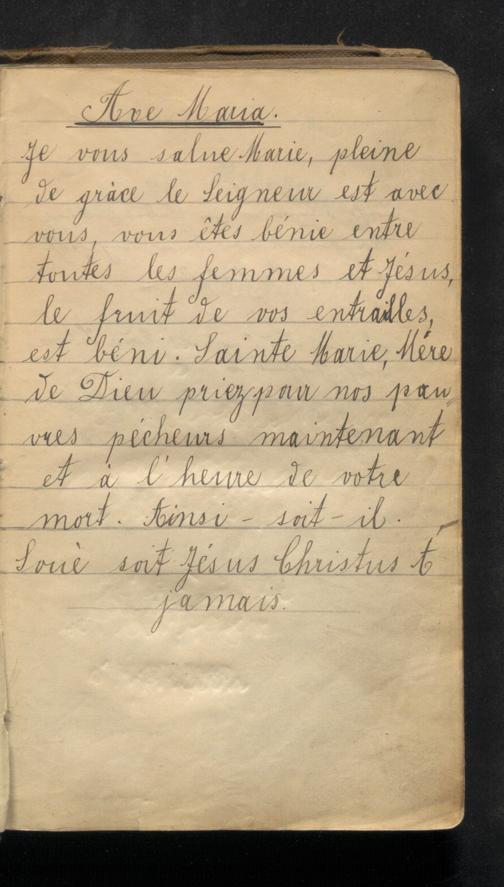 Ave Maria.
Je vous salue Marie, pleine
de grâce le Seigneur est avec
vous, vous êtes bénie entre
toutes les femmes et Jésus,
le fruit de vos entrailles,
est béni. Sainte Marie, Mére
de Dieu priez pour nos pau-
vres pécheurs maintenant
et à l'heure de votre
mort. Ainsi-soit-il.
Louè soit Jésus Christus à
jamais.